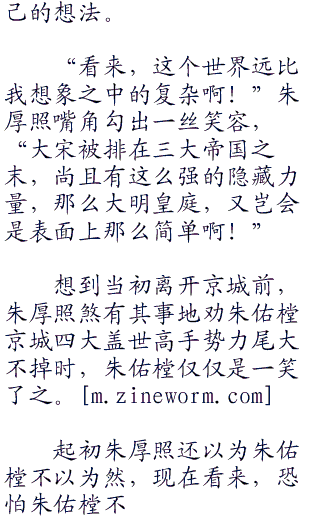 己的想法。
“看来，这个世界远比
我想象之中的复杂啊！”朱
厚照嘴角勾出一丝笑容，
“大宋被排在三大帝国之
末，尚且有这么强的隐藏力
量，那么大明皇庭，又岂会
是表面上那么简单啊！”
想到当初离开京城前，
朱厚照煞有其事地劝朱佑樘
京城四大盖世高手势力尾大
不掉时，朱佑樘仅仅是一笑
了之。[m.zineworm.com]
起初朱厚照还以为朱佑
樘不以为然，现在看来，恐
怕朱佑樘不